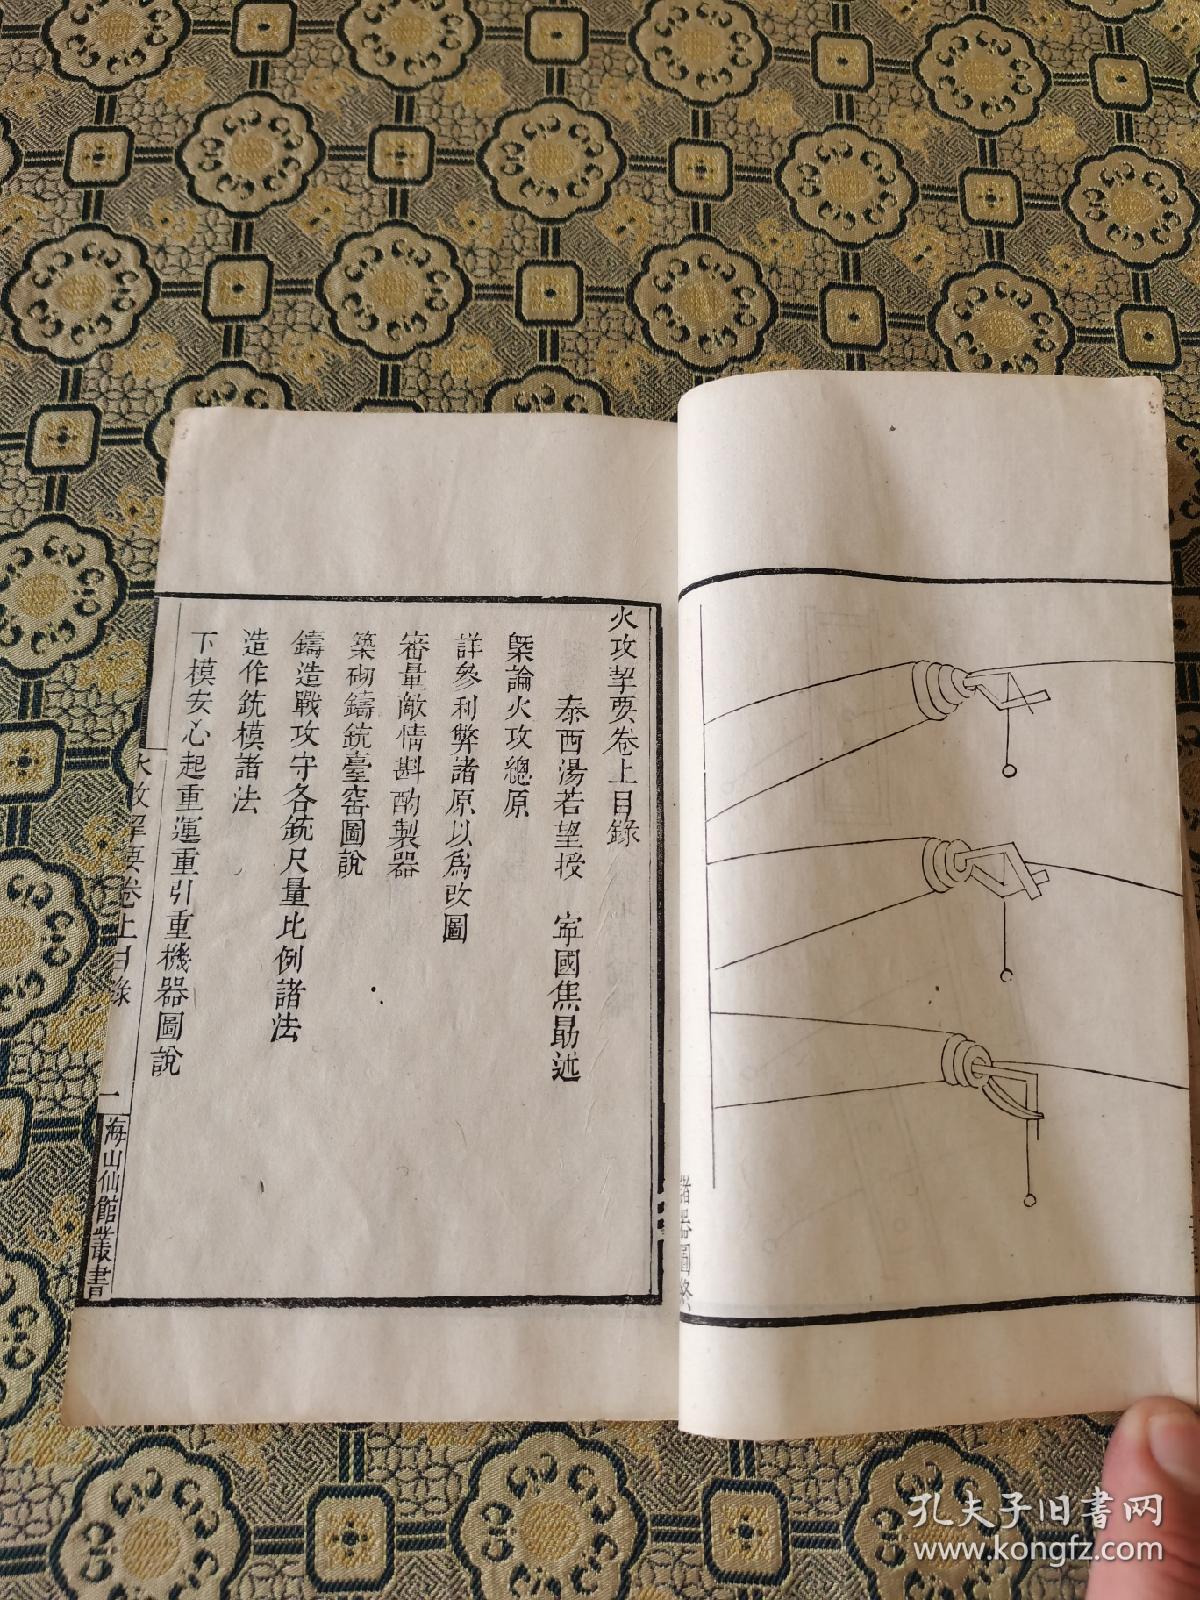 火攻挈要卷上目錄
泰西湯若望授　寧國焦勗述
槩論火攻總原
詳參利弊諸原以爲改圖
審量敵情斟酌製器
築砌鑄銃臺窰圖說
鑄造戰攻守各銃尺量比例諸法
造作銃模諸法
下模安心起重運重引重機器圖說
火攻挈要卷上目錄
一
海山仙館叢書
諸器圖終
孔夫子旧书网
www.kongfz.com